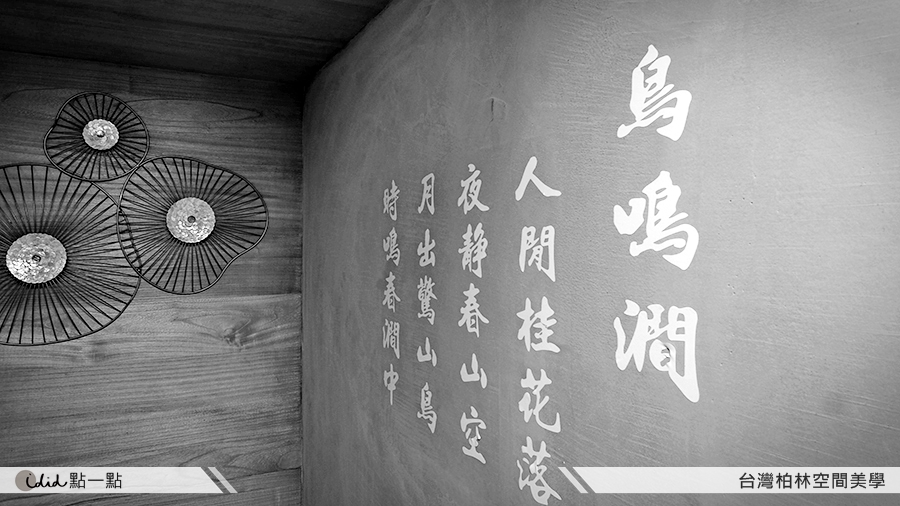 鳥鳴澗
人閒桂花落
夜静春山空
月出驚山鳥
時鳴春澗中
idid 點一點
台灣柏林空間美學